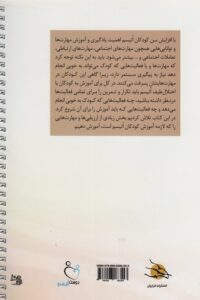 با افزایش سن کودکان اتیسم اهمیت یادگیری و آموزش مهارت‌ها
و توانایی‌هایی همچون مهارت‌های اجتماعی، مهارت‌های ارتباطی،
تعاملات اجتماعی و ... بیشتر می‌شود. باید به این نکته توجه کرد
که مهارت‌ها و یا فعالیت‌هایی که کودک می‌تواند به خوبی انجام
دهد نیاز به پیگیری مستمر دارد، زیرا گاهی این کودکان در
مهارت‌هایشان پسرفت می‌کنند. در کل برای آموزش به کودکان با
اختلال طیف اتیسم باید تکرار و تمرین را برای تمامی فعالیت‌ها
درنظر داشته باشید، چه فعالیت‌هایی که کودک به خوبی انجام
می‌دهد و چه فعالیت‌هایی که باید آموزش را برای آن شروع کرد.
در این کتاب، تلاش کردیم بخش زیادی از ارزیابی‌ها و مهارت‌ها
را که لازمه آموزش کودکان اتیسم است، آموزش دهیم.